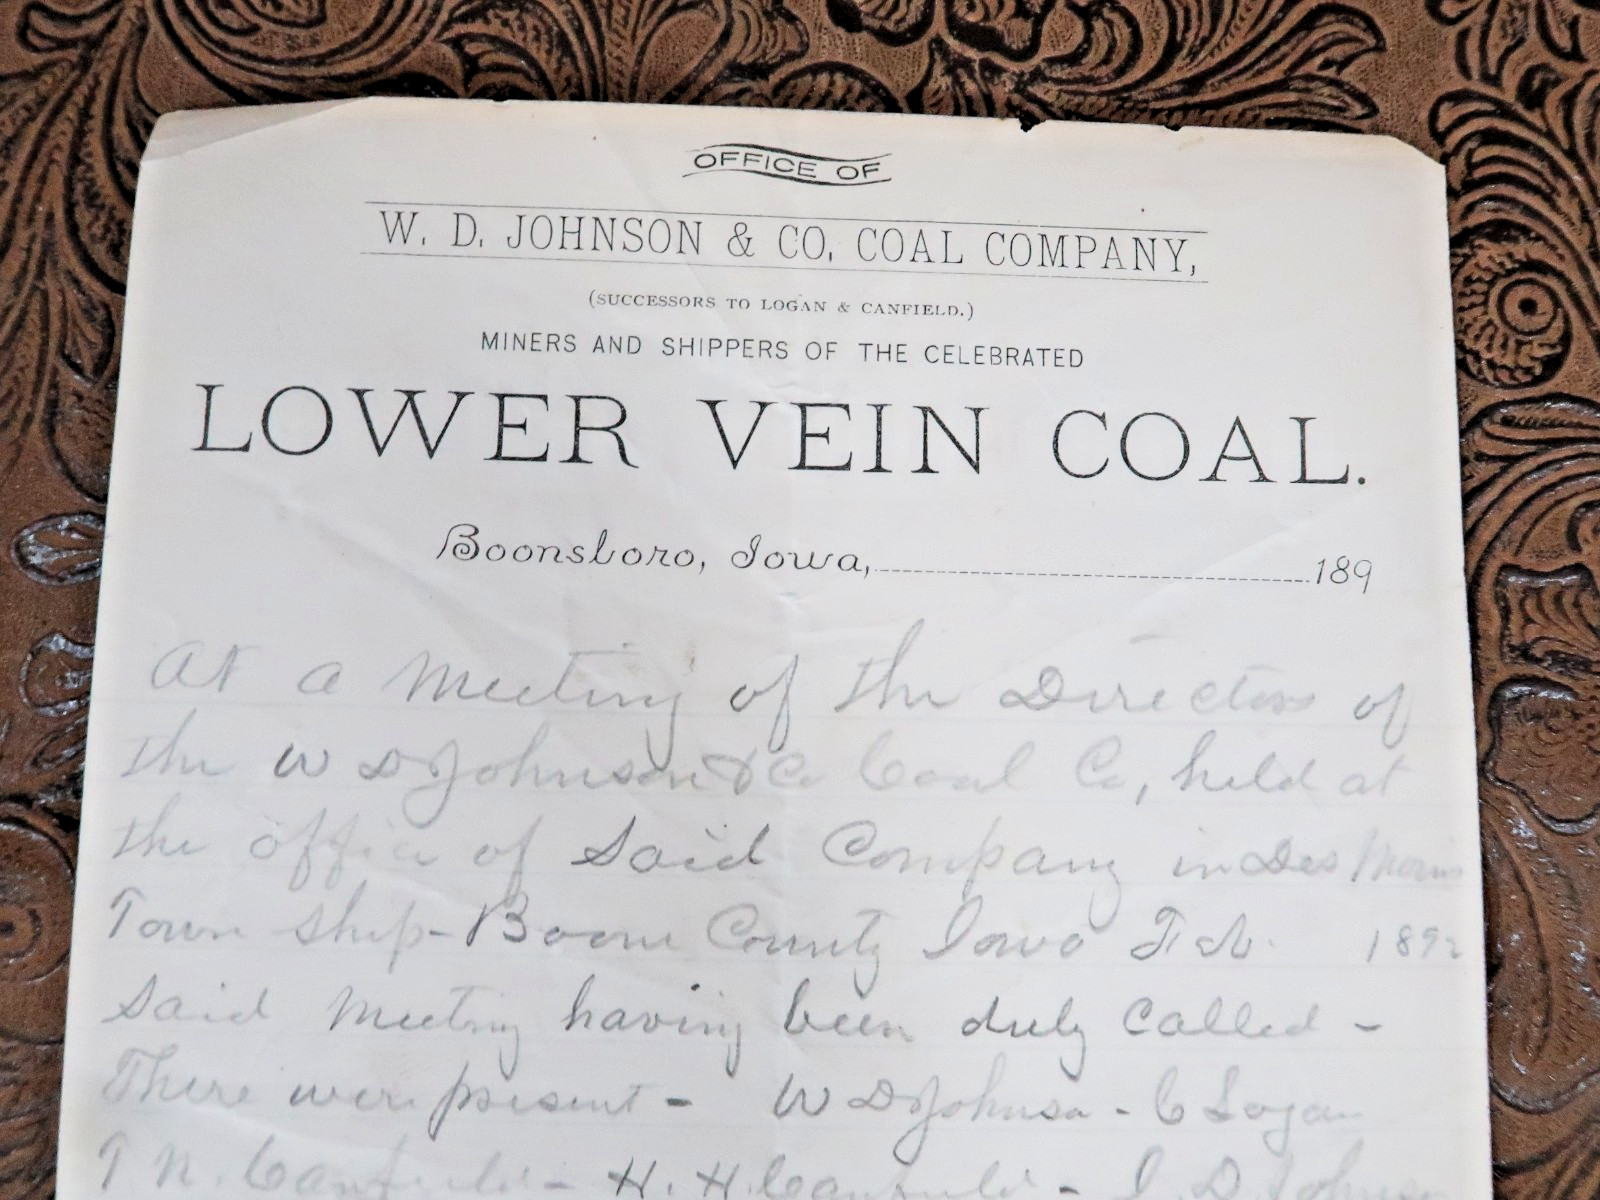 OFFICE OF
W. D. JOHNSON & CO. COAL COMPANY,
(SUCCESSORS TO LOGAN & CANFIELD.)
MINERS AND SHIPPERS OF THE CELEBRATED
LOWER VEIN COAL.
Boonsboro, Iowa, 189
At a Meeting of the Directors of
the W D Johnson & Co Coal Co, held at
the office of Said Company in Des Moines
Town ship - Boone County Iowa Feb. 1892
Said Meeting having been duly Called -
There were present - W D Johnson - C Logan
T N. Canfield - H. H. Canfield - I. D. Johnson